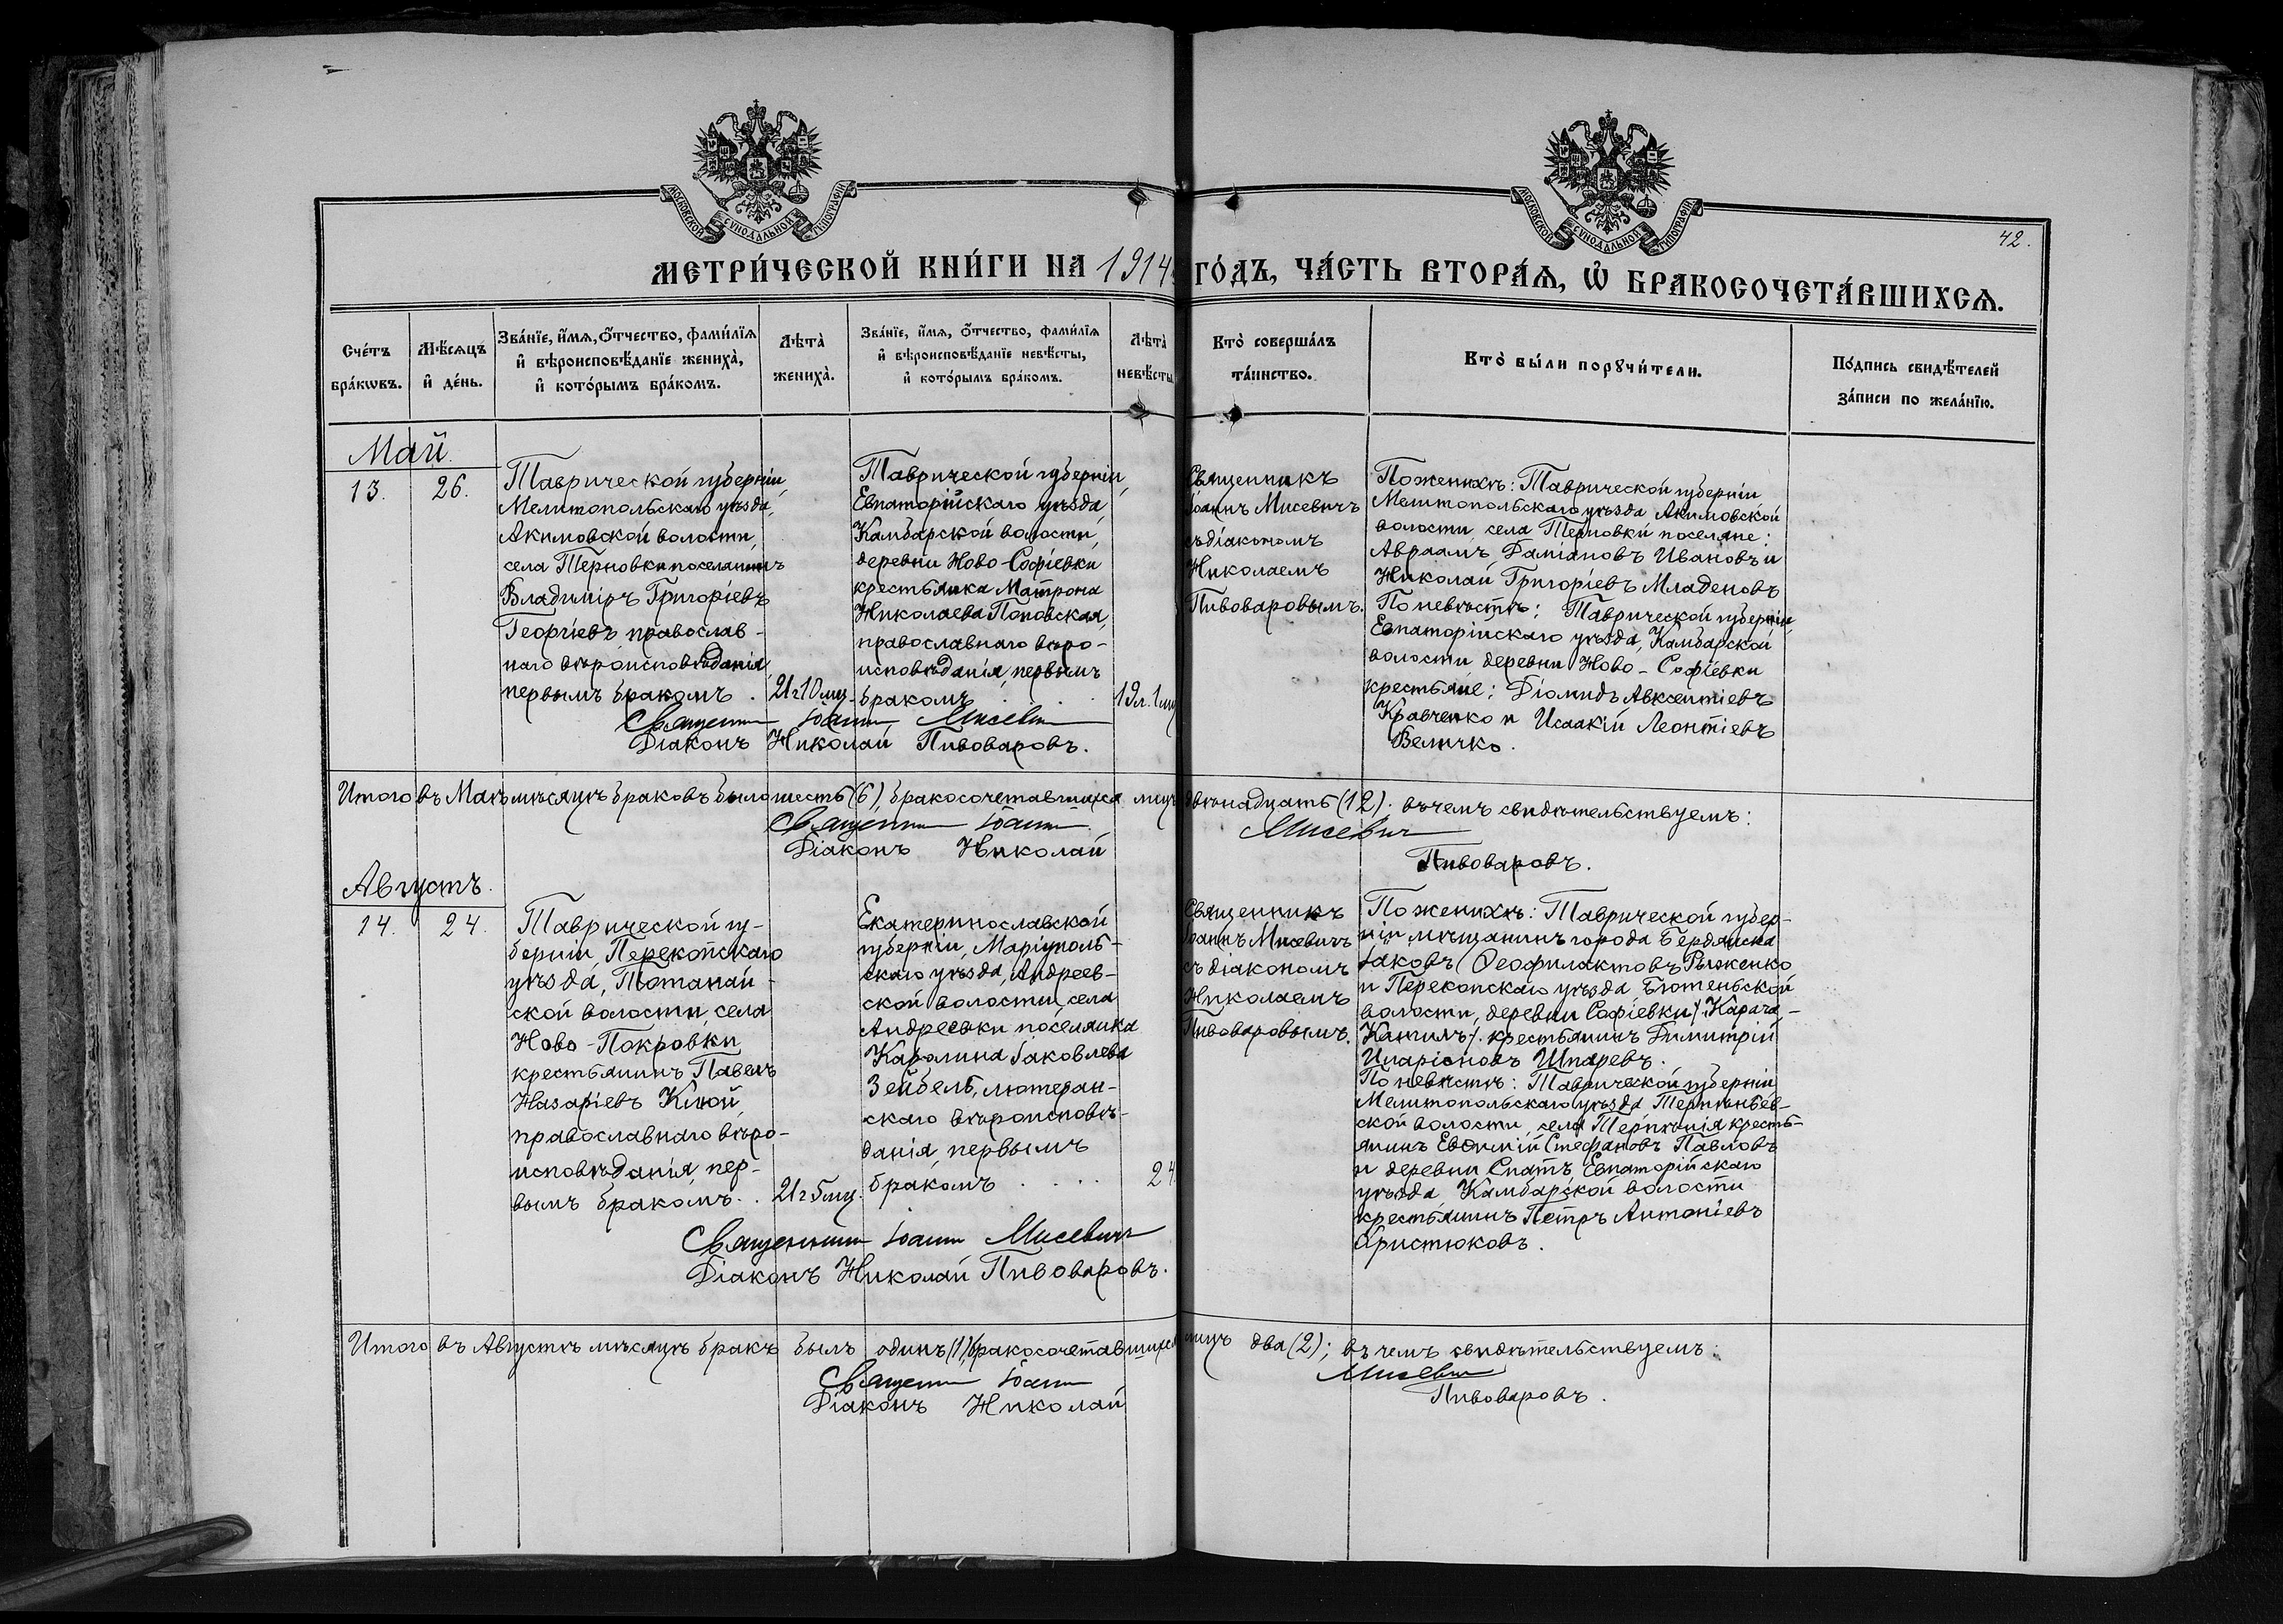 МОСКОВСКОЙ СѴНОДАЛЬНОЙ ТИПОГРАФІИ
МОСКОВСКОЙ СѴНОДАЛЬНОЙ ТИПОГРАФІИ
42.
МЕТРИ́ЧЕСКОЙ КНИ́ГИ НА 1914 ГО́ДЪ, ЧА́СТЬ ВТОРА́Ѧ, Ѡ҆ БРАКОСОЧЕТА́ВШИХСѦ.
Сче́тъ
бра́кѡвъ.
Мѣ́сѧцъ
и҆ де́нь.
Зва́нїе, и҆́мѧ, ѻ҆́тчество, фами́лїѧ
и҆ вѣроисповѣ́данїе жениха̀,
и҆ кото́рымъ бра́комъ.
Лѣ́та̀
жениха̀.
Зва́нїе, и҆́мѧ, ѻ҆́тчество, фами́лїѧ
и҆ вѣроисповѣ́данїе невѣ́сты,
и҆ кото́рымъ бра́комъ.
Лѣ́та̀
невѣ́сты
Кто̀ соверша́лъ
та́инство.
Кто̀ бы́ли порꙋчи́тели.
По́дпись свидѣ́телей
за́писи по жела́нїю.
Май.
13.
26.
Таврической губерніи,
Мелитопольскаго уѣзда,
Акимовской волости,
села Терновки поселянинъ
Владиміръ Григоріевъ
Георгіевъ, православ-
наго вѣроисповѣданія,
первымъ бракомъ.
21г10мц.
Таврической губерніи,
Евпаторійскаго уѣзда,
Камбарской волости,
деревни Ново-Софіевки
крестьянка Матрона
Николаева Поповская,
православнаго вѣро-
исповѣданія, первымъ
бракомъ
19л.1мц
Священникъ
Іоаннъ Мисевичъ
съ діакономъ
Николаемъ
Пивоваровымъ.
По женихѣ: Таврической губерніи
Мелитопольскаго уѣзда Акимовской
волости, села Терновки поселяне:
Авраамъ Даміановъ Ивановъ и
Николай Григоріевъ Младеновъ
По невѣстѣ: Таврической губерніи,
Евпаторійскаго уѣзда, Камбарской
волости деревни Ново-Софіевки
крестьяне: Діомидъ Авксентіевъ
Кравченко и Исаакій Леонтіевъ
Величко.
Священникъ Іоаннъ Мисевичъ
Діаконъ Николай Пивоваровъ.
Итого въ Маѣ мѣсяцѣ браковъ было шесть (6), бракосочетавшихся лицъ двѣнадцать (12); въ чемъ свидѣтельствуемъ:
Священникъ Іоаннъ Мисевичъ
Діаконъ Николай Пивоваровъ.
Августъ.
14.
24.
Таврической гу-
берніи, Перекопскаго
уѣзда, Тотанай-
ской волости, села
Ново-Покровки
крестьянинъ Павелъ
Назаріевъ Клюй,
православнаго вѣро-
исповѣданія, пер-
вымъ бракомъ..
21г5мц.
Екатеринославской
губерніи, Маріуполь-
скаго уѣзда, Андреев-
ской волости, села
Андреевки поселянка
Каролина Іаковлева
Зейбель, лютеран-
скаго вѣроисповѣ-
данія, первымъ
бракомъ....
24
Священникъ
Іоаннъ Мисевичъ
съ діакономъ
Николаемъ
Пивоваровымъ.
По женихѣ: Таврической губер-
ніи мѣщанинъ города Бердянска
Іаковъ Ѳеофилактовъ Рыженко
и Перекопскаго уѣзда Бютеньской
волости, деревни Софіевки /Карача-
Катилъ/. крестьянинъ Димитрій
Иларіоновъ Шпаревъ.
По невѣстѣ: Таврической губерніи
Мелитопольскаго уѣзда Терпѣньев-
ской волости, села Терпѣнія кресть-
янинъ Евѳимій Стефановъ Павловъ
и деревни Спатъ Евпаторійскаго
уѣзда Камбарской волости
крестьянинъ Петръ Антоніевъ
Аристюковъ.
Священникъ Іоаннъ Мисевичъ
Діаконъ Николай Пивоваровъ.
Итого въ Августѣ мѣсяцѣ бракъ былъ одинъ (1), бракосочетавшихся лицъ два (2); въ чемъ свидѣтельствуемъ:
Священникъ Іоаннъ Мисевичъ
Діаконъ Николай Пивоваровъ.